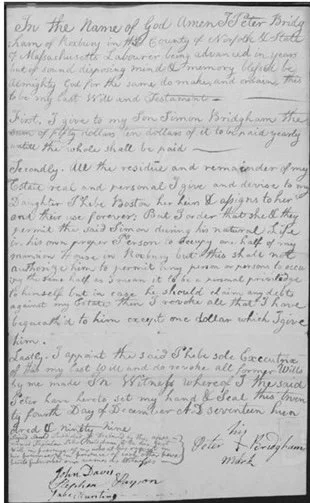 In the Name of God Amen I Peter Bridg
ham of Roxbury in the County of Norfolk & State
of Massachusetts Labourer being advanced in years
but of sound disposing mind & memory blessed be
almighty God for the same do make and ordain this
to be my last Will and Testament
First, I give to my Son Simon Bridgham the
sum of fifty dollars ten dollars of it to be paid yearly
until the whole shall be paid
Secondly. All the residue and remainder of my
Estate real and personal I give and devise to my
Daughter Phebe Boston her heirs & assigns to her
and their use forever; But I order that she & they
permit the said Simon during his natural Life
in his own proper Person to occupy one half of my
mansion House in Roxbury but this shall not
authorize him to permit any person or persons to occu
py the same half as I mean it to be a personal priviledge
to himself but in case he should claim any debts
against my Estate then I revoke all that I have
bequeath'd to him except one dollar which I give
him.
Lastly. I appoint the said Phebe sole Executrix
of this my last Will and do revoke all former Wills
by me made In Witness whereof I the said
Peter have hereto set my hand & Seal this twen
ty fourth Day of December A.D seventeen hun
dred & Ninety Nine
his
Peter Bridgham
mark
John Davis
Stephen